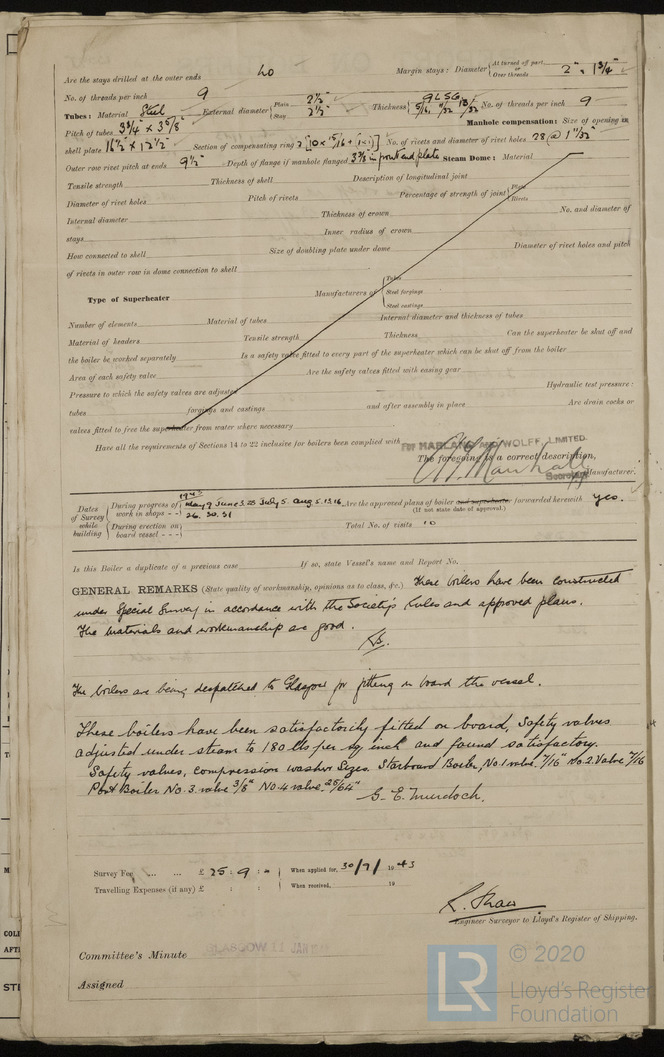 Are the stays drilled at the outer ends No Margin stays: Diameter { At turned off part, or Over threads 2" 1 3/4"
No. of threads per inch 9
Tubes: Material Steel External diameter { Plain 2 1/2" Stay 2 1/2" Thickness { 9 LSG 5/16, 11/32 13/32 No. of threads per inch 9
Pitch of tubes 3 3/4" x 3 5/8" Manhole compensation: Size of opening in
shell plate 16 1/2" x 12 1/2" Section of compensating ring No. of rivets and diameter of rivet holes 28 @ 1 1/32"
Outer row rivet pitch at ends 9 1/2" Depth of flange if manhole flanged 3 3/8" in front end plate Steam Dome: Material
Tensile strength Thickness of shell Description of longitudinal joint
Diameter of rivet holes Pitch of rivets Percentage of strength of joint { Plate Rivets
Internal diameter Thickness of crown No. and diameter of
stays Inner radius of crown
How connected to shell Size of doubling plate under dome Diameter of rivet holes and pitch
of rivets in outer row in dome connection to shell
Type of Superheater Manufacturers of { Tubes Steel forgings Steel castings
Number of elements Material of tubes Internal diameter and thickness of tubes
Material of headers Tensile strength Thickness Can the superheater be shut off and
the boiler be worked separately Is a safety valve fitted to every part of the superheater which can be shut off from the boiler
Area of each safety valve Are the safety valves fitted with easing gear
Pressure to which the safety valves are adjusted Hydraulic test pressure:
tubes forgings and castings and after assembly in place Are drain cocks or
valves fitted to free the superheater from water where necessary
Have all the requirements of Sections 14 to 22 inclusive for boilers been complied with
For HARLAND AND WOLFF, LIMITED.
The foregoing is a correct description,
Marshall Secretary Manufacturer.
Dates of Survey while building { During progress of work in shops - - May 9 June 3. 23 July 5. Aug 5. 13. 16 26. 30. 31
During erection on board vessel - - -
Are the approved plans of boiler and superheater forwarded herewith yes.
(If not state date of approval.)
Total No. of visits 10
Is this Boiler a duplicate of a previous case If so, state Vessel's name and Report No.
GENERAL REMARKS (State quality of workmanship, opinions as to class, &c.) These boilers have been constructed
under Special Survey in accordance with the Society's Rules and approved plans.
The materials and workmanship are good.
The boilers are being despatched to Glasgow for fitting on board the vessel.
These boilers have been satisfactorily fitted on board, Safety valves
adjusted under steam to 180 lbs per sq inch and found satisfactory.
Safety valves, compression washer Sizes. Starboard Boiler, No. 1 valve 7/16" No. 2. Valve 7/16
Port Boiler No. 3 valve 3/8" No 4 valve 25/64"
G. E. Murdoch.
Survey Fee ... ... £ 25 : 9 : - When applied for, 30/9/ 19 43
Travelling Expenses (if any) £ : : When received, 19
Engineer Surveyor to Lloyd's Register of Shipping.
Committee's Minute GLASGOW 11 JAN
Assigned
LR © 2020
Lloyd's Register
Foundation